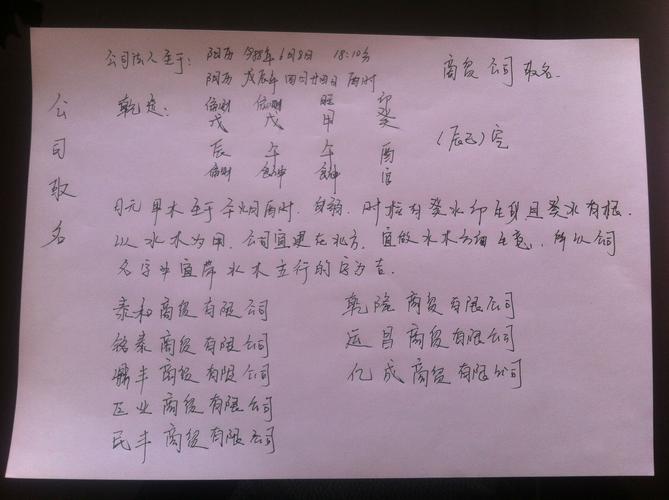 公司取名
公司法人生于: 阳历 年6月8日 18:10分
阴历 戊辰年 四月廿四日 酉时
商贸公司取名.
乾造: 偏财 偏财 日 印
戊 戊 甲 癸
辰 午 午 酉
偏财 官
(辰巳)空
日元甲木生于午月酉时. 身弱. 时柱有癸水印生身,且癸水有根.
以水木为用. 公司宜建在北方. 宜做水木方面生意. 所以公司
名字中宜带水木五行的字为吉.
泰和商贸有限公司
铭泰商贸有限公司
鼎丰商贸有限公司
正业商贸有限公司
民丰商贸有限公司
乾隆商贸有限公司
运昌商贸有限公司
亿成商贸有限公司